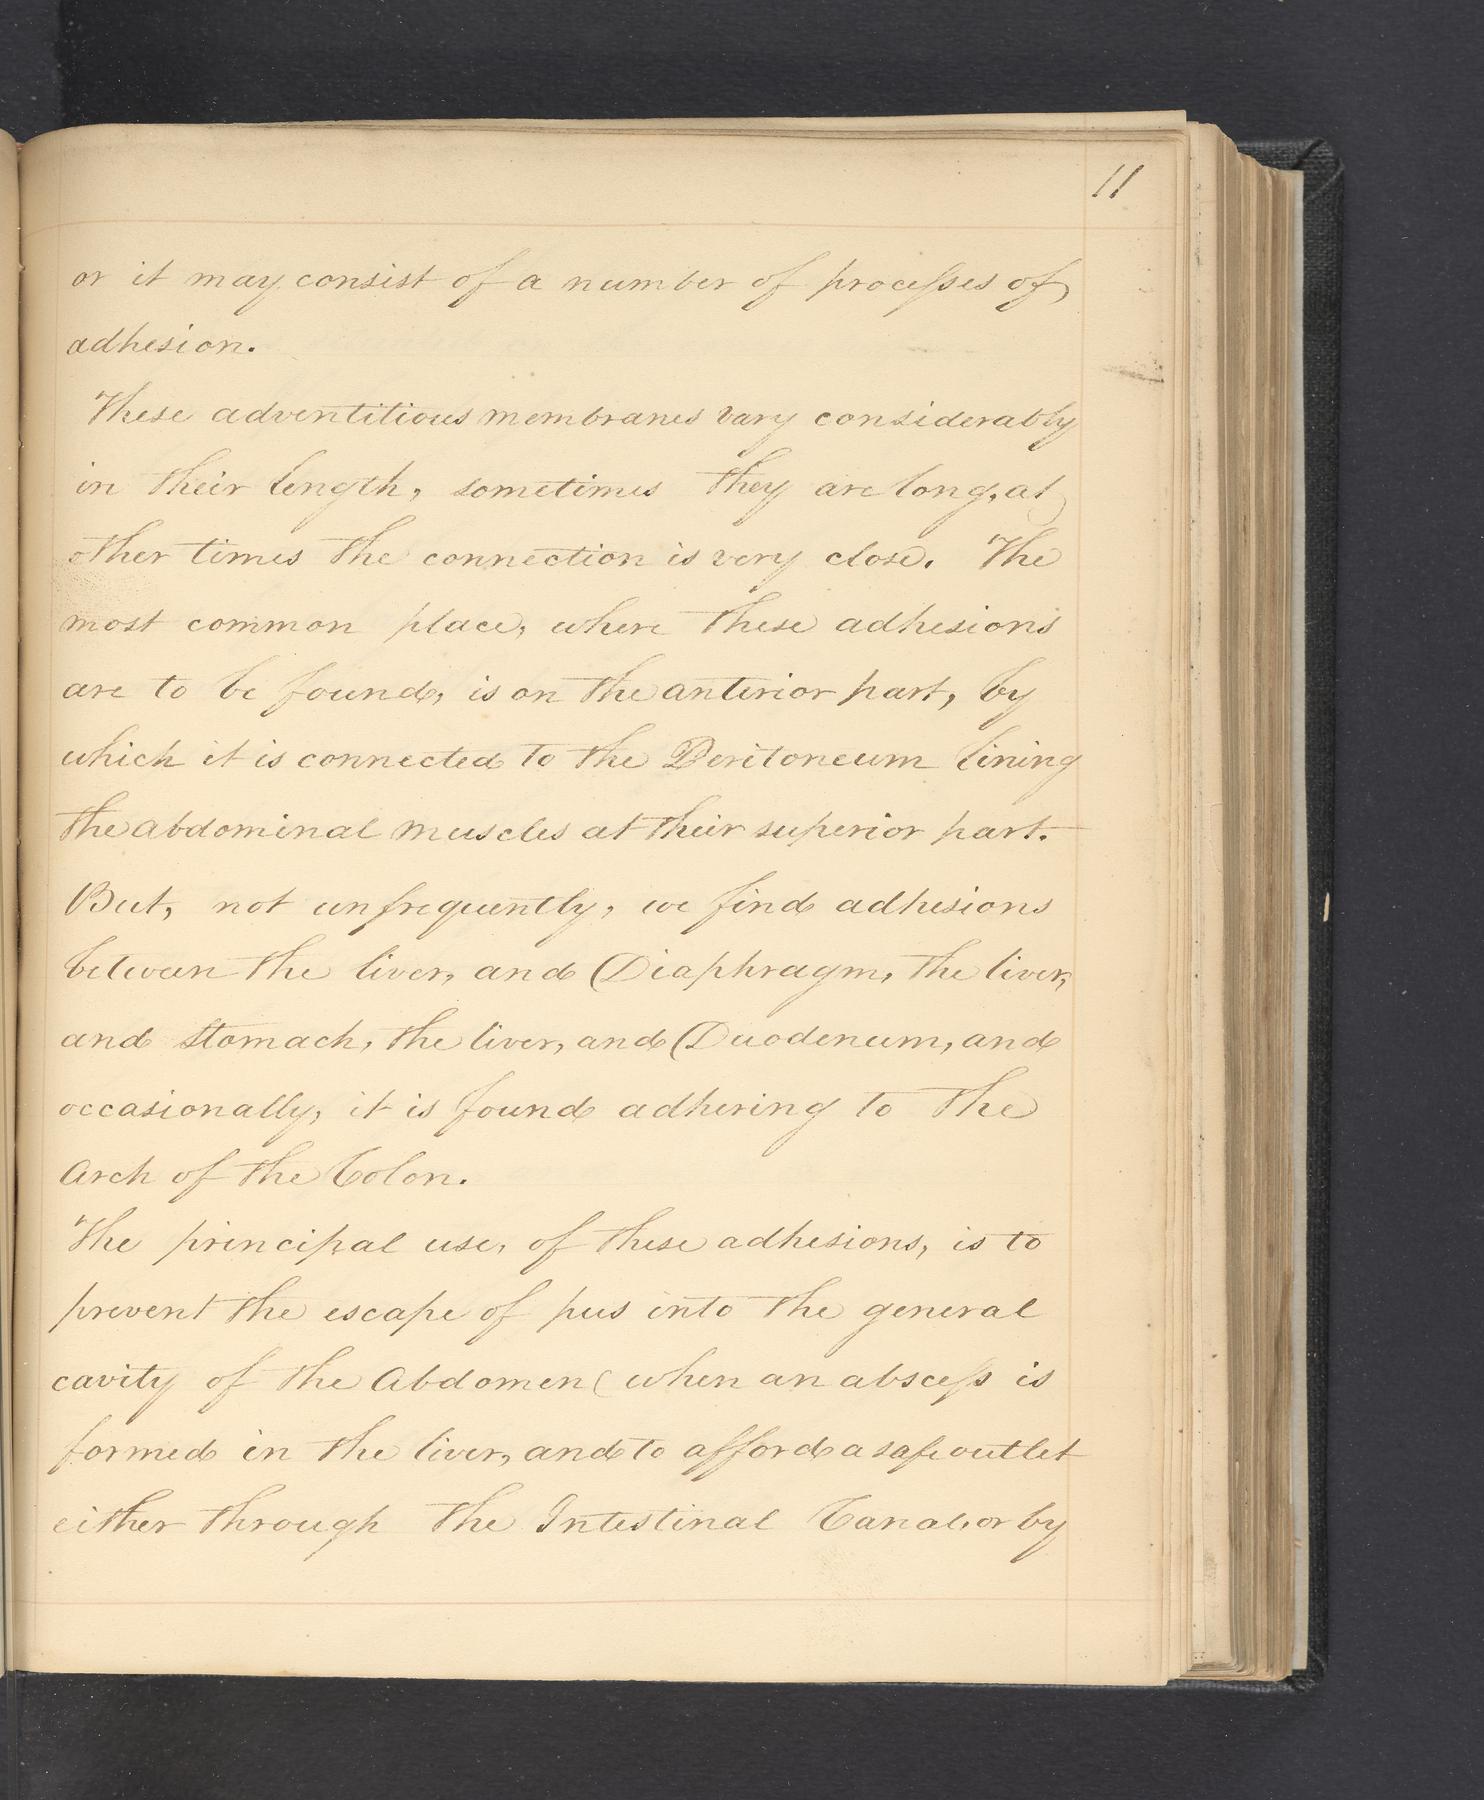 11
or it may consist of a number of processes of
adhesion.
These adventitious membranes vary considerably
in their length, sometimes they are long, at
other times the connection is very close. The
most common place, where these adhesions
are to be found, is on the anterior part, by
which it is connected to the Peritoneum lining
the abdominal muscles at their superior part.
But, not unfrequently, we find adhesions
between the liver, and Diaphragm, the liver,
and stomach, the liver, and Duodenum, and
occasionally, it is found adhering to the
Arch of the Colon.
The principal use, of these adhesions, is to
prevent the escape of pus into the general
cavity of the Abdomen (when an abscess is
formed in the liver, and to afford a safe outlet
either through the Intestinal Canal, or by